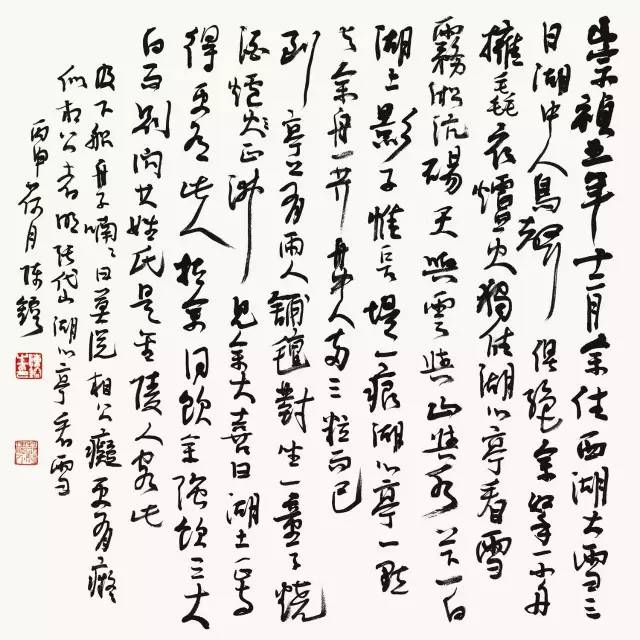 崇禎五年十二月余住西湖大雪三
日湖中人鳥聲俱絕余拏一小舟
擁毳衣爐火獨往湖心亭看雪
霧淞沆碭天與雲與山與水上下一白
湖上影子惟長堤一痕湖心亭一點
與余舟一芥舟中人兩三粒而已
到亭上有兩人鋪氈對坐一童子燒
酒爐正沸見余大喜曰湖上焉
得更有此人拉余同飲余強飲三大
白而別問其姓氏是金陵人客此
及下船舟子喃喃曰莫說相公癡更有癡
似相公者明張岱湖心亭看雪
丙申荷月陳